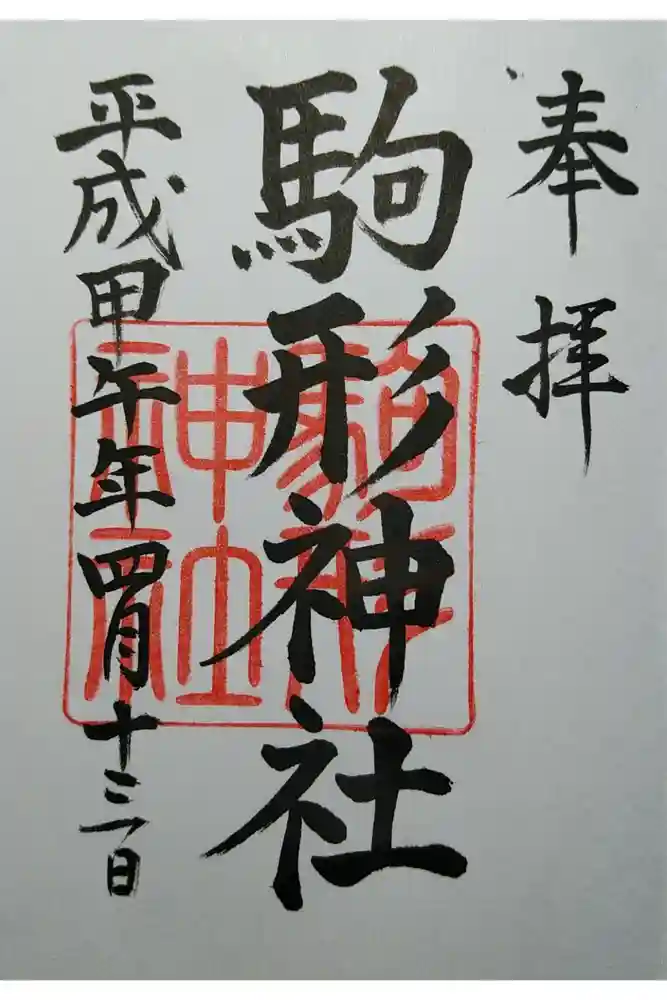 奉拝
駒形神社
平成甲午年四月十三日
駒形
神社